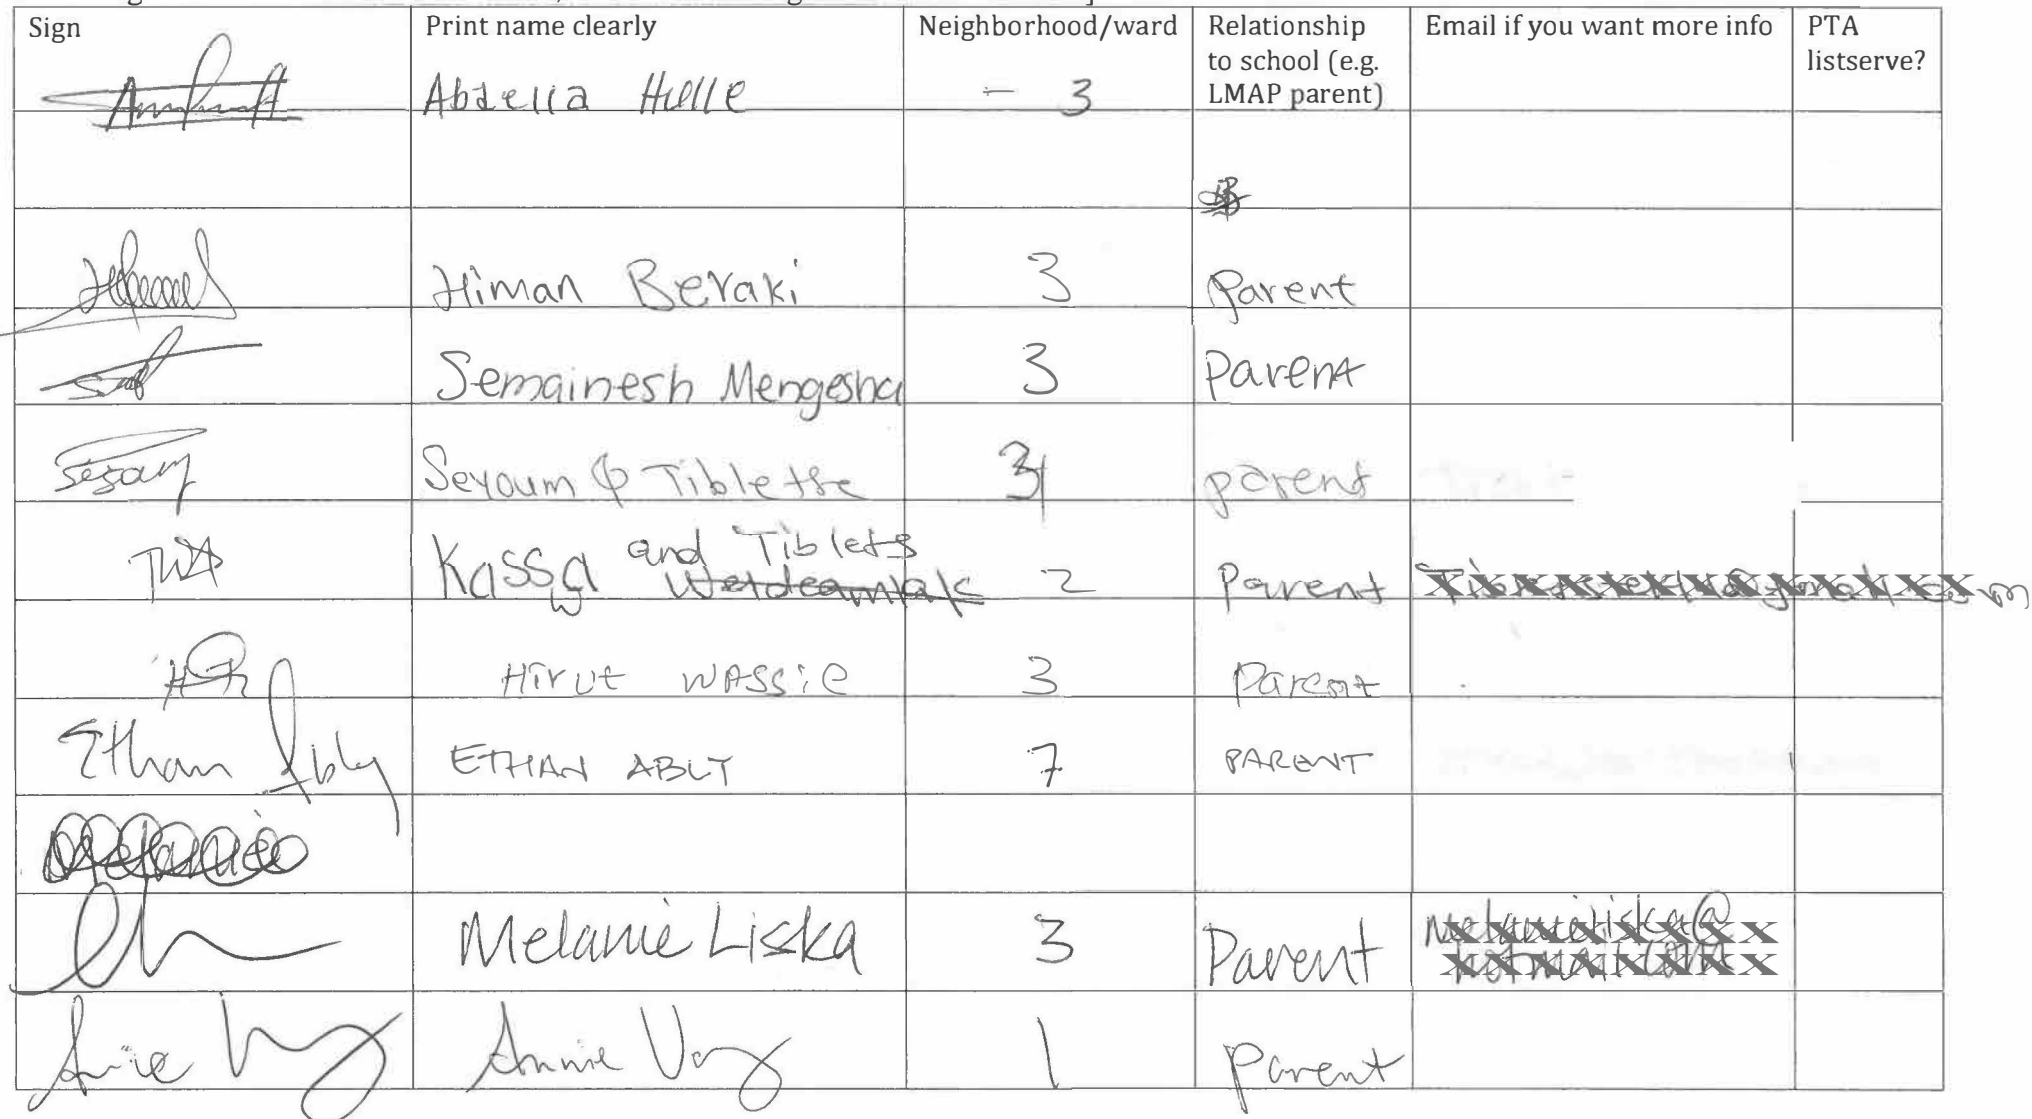 Sign Print name clearly Neighborhood/ward Relationship to school (e.g. LMAP parent) Email if you want more info PTA listserve?
Abdella Hulle - 3
Himan Beraki 3 Parent
Semainesh Mengesha 3 Parent
Seyoum & Tibletse 3 parent
TWA Kassa and Tiblets Woldeamlak 2 Parent
Hirut WASSie 3 Parent
Ethan Ably ETHAN ABLY 7 PARENT
Melanie
Melanie Liska 3 Parent
Annie Annie 1 Parent